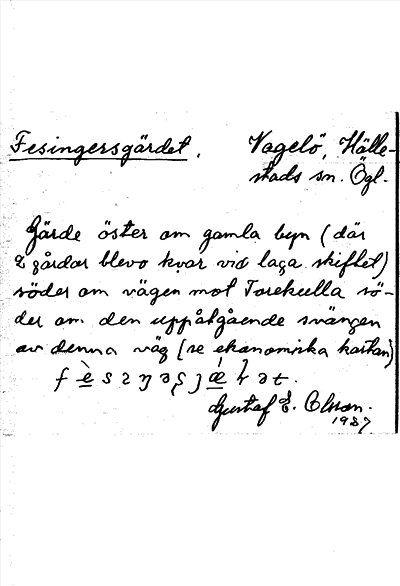 Fesingersgärdet. Vagelö, Hälle-
stads sn. Ögl.
Gärde öster om gamla byn (där
2 gårdar blevo kvar vid laga skiftet)
söder om vägen mot Torekulla sö-
der om den uppåtgående svängen
av denna väg (se ekonomiska kartan)
Gustaf E. Olsson.
1937